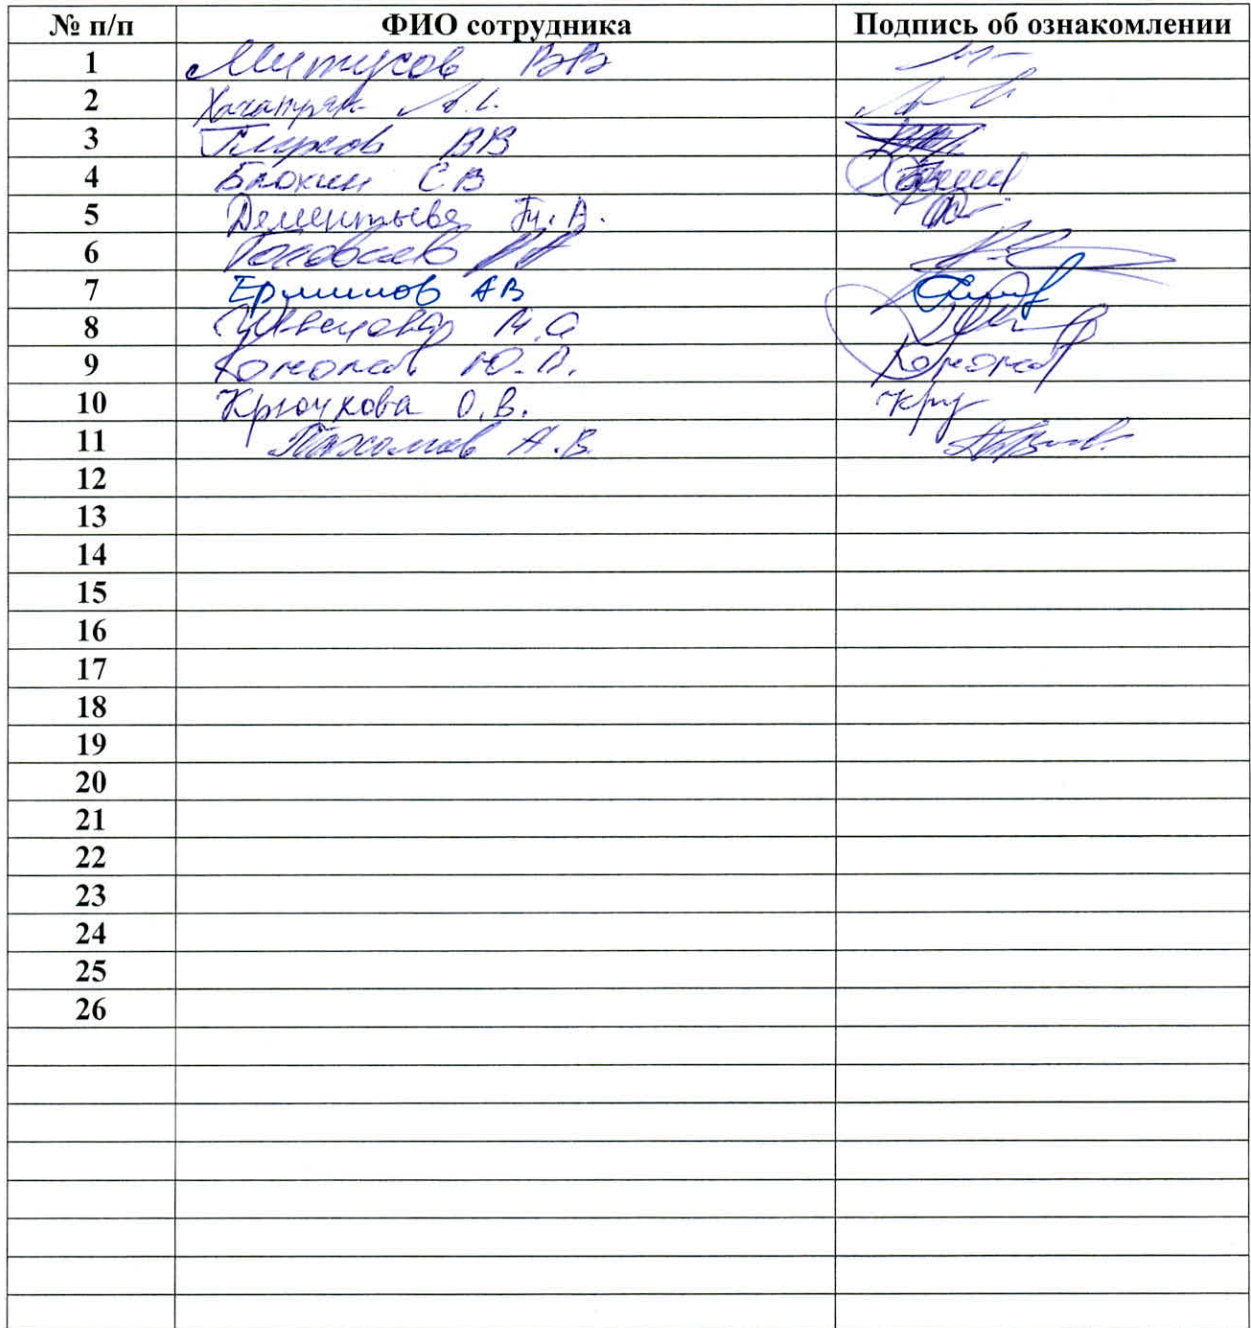 № п/п ФИО сотрудника Подпись об ознакомлении
1 Митусов ВВ
2 Хачатрян А.
3 Глухов ВВ
4 Блохин СВ
5 Дементьева
6
7 Ермилов АВ
8 М.А
9 Кононов Ю.В. Кононов
10 Крючкова О.В. Крю
11 Пахомов А.В.
12
13
14
15
16
17
18
19
20
21
22
23
24
25
26